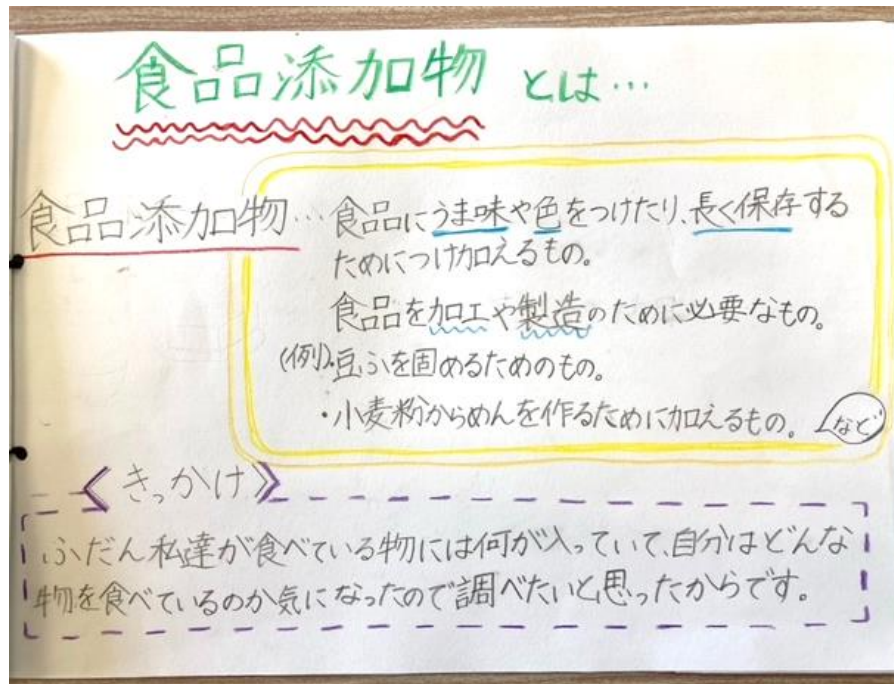 食品添加物 とは…
食品添加物… 食品にうま味や色をつけたり、長く保存する
ためにつけ加えるもの。
食品を加工や製造のために必要なもの。
(例)・豆ふを固めるためのもの。
・小麦粉からめんを作るために加えるもの。 など
《きっかけ》
ふだん私達が食べている物には何が入っていて、自分はどんな
物を食べているのか気になったので調べたいと思ったからです。